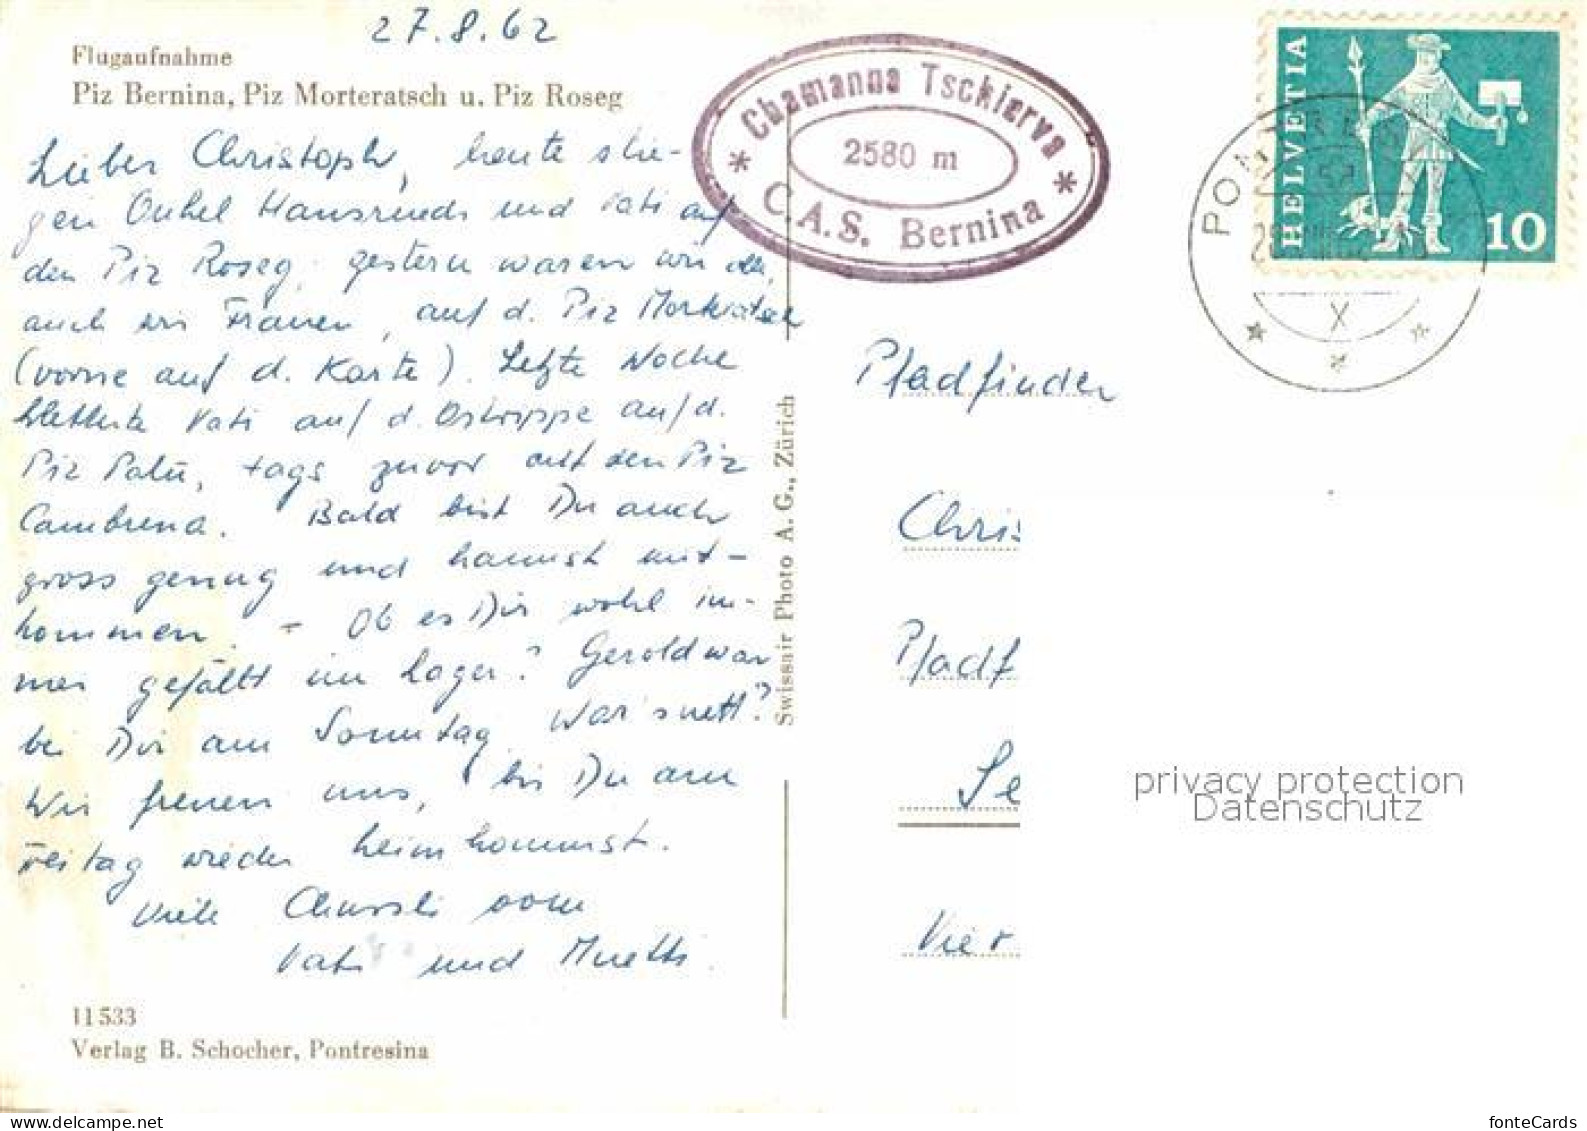 27.8.62
Flugaufnahme
Piz Bernina, Piz Morteratsch u. Piz Roseg
Lieber Christoph, heute stie-
gen Onkel Hansruedi und Vati auf
den Piz Roseg, gestern waren wir alle,
auch wir Frauen, auf d. Piz Morteratsch
(vorne auf d. Karte). Letzte Woche
kletterte Vati auf d. Ostrippe auf d.
Piz Palü, tags zuvor auf den Piz
Cambrena. Bald bist Du auch
gross genug und kannst mit-
kommen. - Ob es Dir wohl im-
mer gefällt im Lager? Gerold war
bei Dir am Sonntag. War's nett?
Wir freuen uns, bis Du am
Freitag wieder heimkommst.
Viele vom
Vati und Muetti.
11533
Verlag B. Schocher, Pontresina
Swissair Photo A. G., Zürich
* Chamanna Tschierva *
2580 m
C.A.S. Bernina
HELVETIA
10
PON
X
Pfadfinder
Chris
Pfadf
Se
Vier
privacy protection
Datenschutz
www.delcampe.net
fonteCards